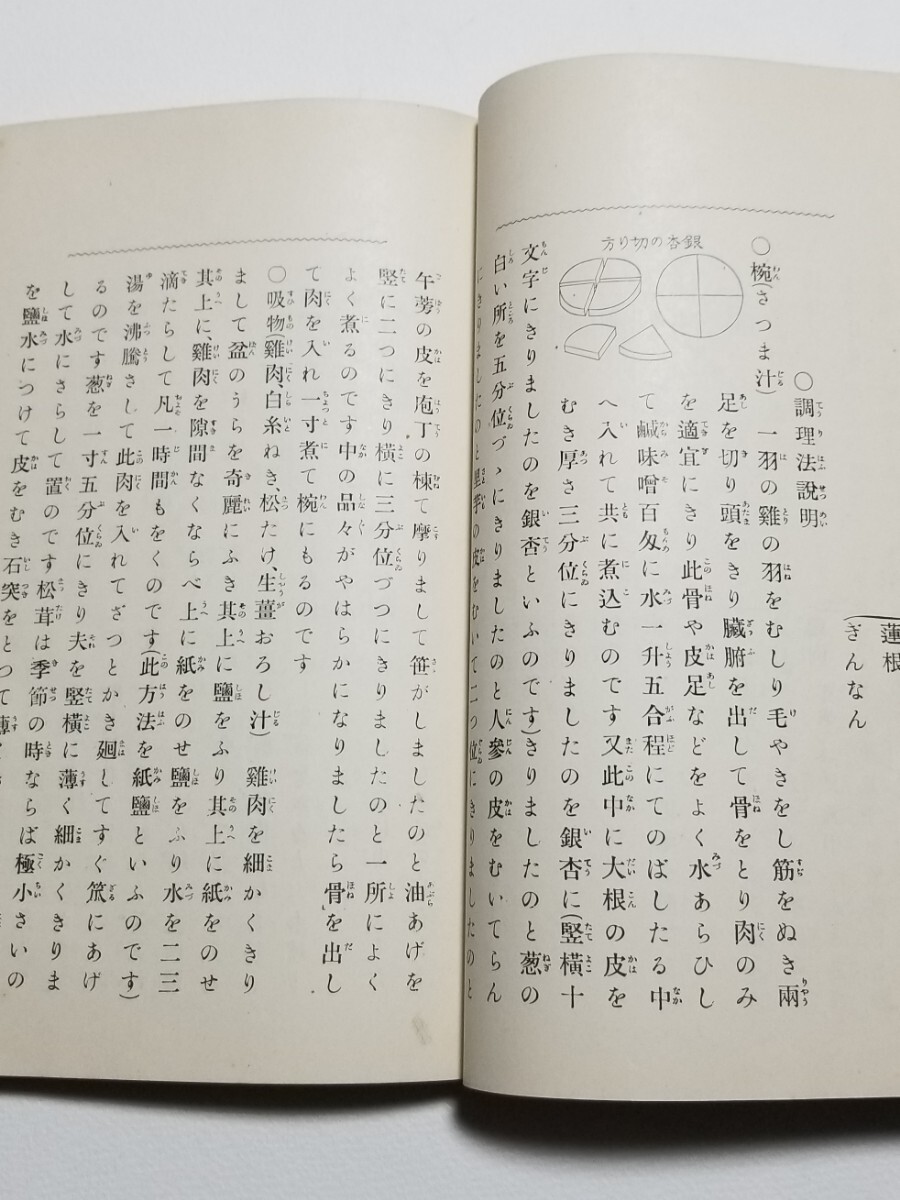 蓮根
ぎんなん
○調理法説明
○椀(さつま汁)
一羽の雞の羽をむしり毛やきをし筋をぬき兩
足を切り頭をきり臟腑を出して骨をとり肉のみ
を適宜にきり此骨や皮足などをよく水あらひし
て鹹味噌百匁に水一升五合程にてのばしたる中
へ入れて共に煮込むのです又此中に大根の皮を
むき厚さ三分位にきりましたのを銀杏に(竪横十
銀杏の切り方
文字にきりましたのを銀杏といふのです)きりましたのと葱の
白い所を五分位づゝにきりましたのと人參の皮をむいてらん
にきりましたのと里芋の皮をむいて二つ位にきりましたのと
午蒡の皮を庖丁の棟て摩りまして笹がしましたのと油あげを
竪に二つにきり横に三分位づつにきりましたのと一所によく
よく煮るのです中の品々がやはらかになりましたら骨を出し
て肉を入れ一寸煮て椀にもるのです
○吸物雞肉、白糸ねき、松たけ、生薑おろし汁) 雞肉を細かくきり
まして盆のうらを奇麗にふき其上に鹽をふり其上に紙をのせ
其上に、雞肉を隙間なくならべ上に紙をのせ鹽をふり水を二三
滴たらして凡一時間もをくのです(此方法を紙鹽といふのです)
湯を沸騰さして此肉を入れてざつとかき廻してすぐ笊にあげ
るのです葱を一寸五分位にきり夫を竪横に薄く細かくきりま
して水にさらして置のです松茸は季節の時ならば極小さいの
を鹽水につけて皮をむき石突をとつて薄